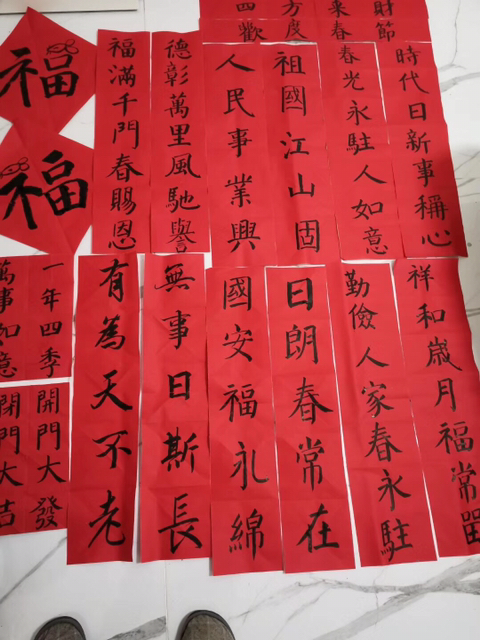 四方来財
歡度春節
時代日新事稱心
春光永駐人如意
祖國江山固
人民事業興
德彰萬里風馳譽
福滿千門春賜恩
福
福
祥和歲月福常留
勤儉人家春永駐
日朗春常在
國安福永綿
無事日斯長
有為天不老
一年四季
萬事如意
開門大發
閉門大吉